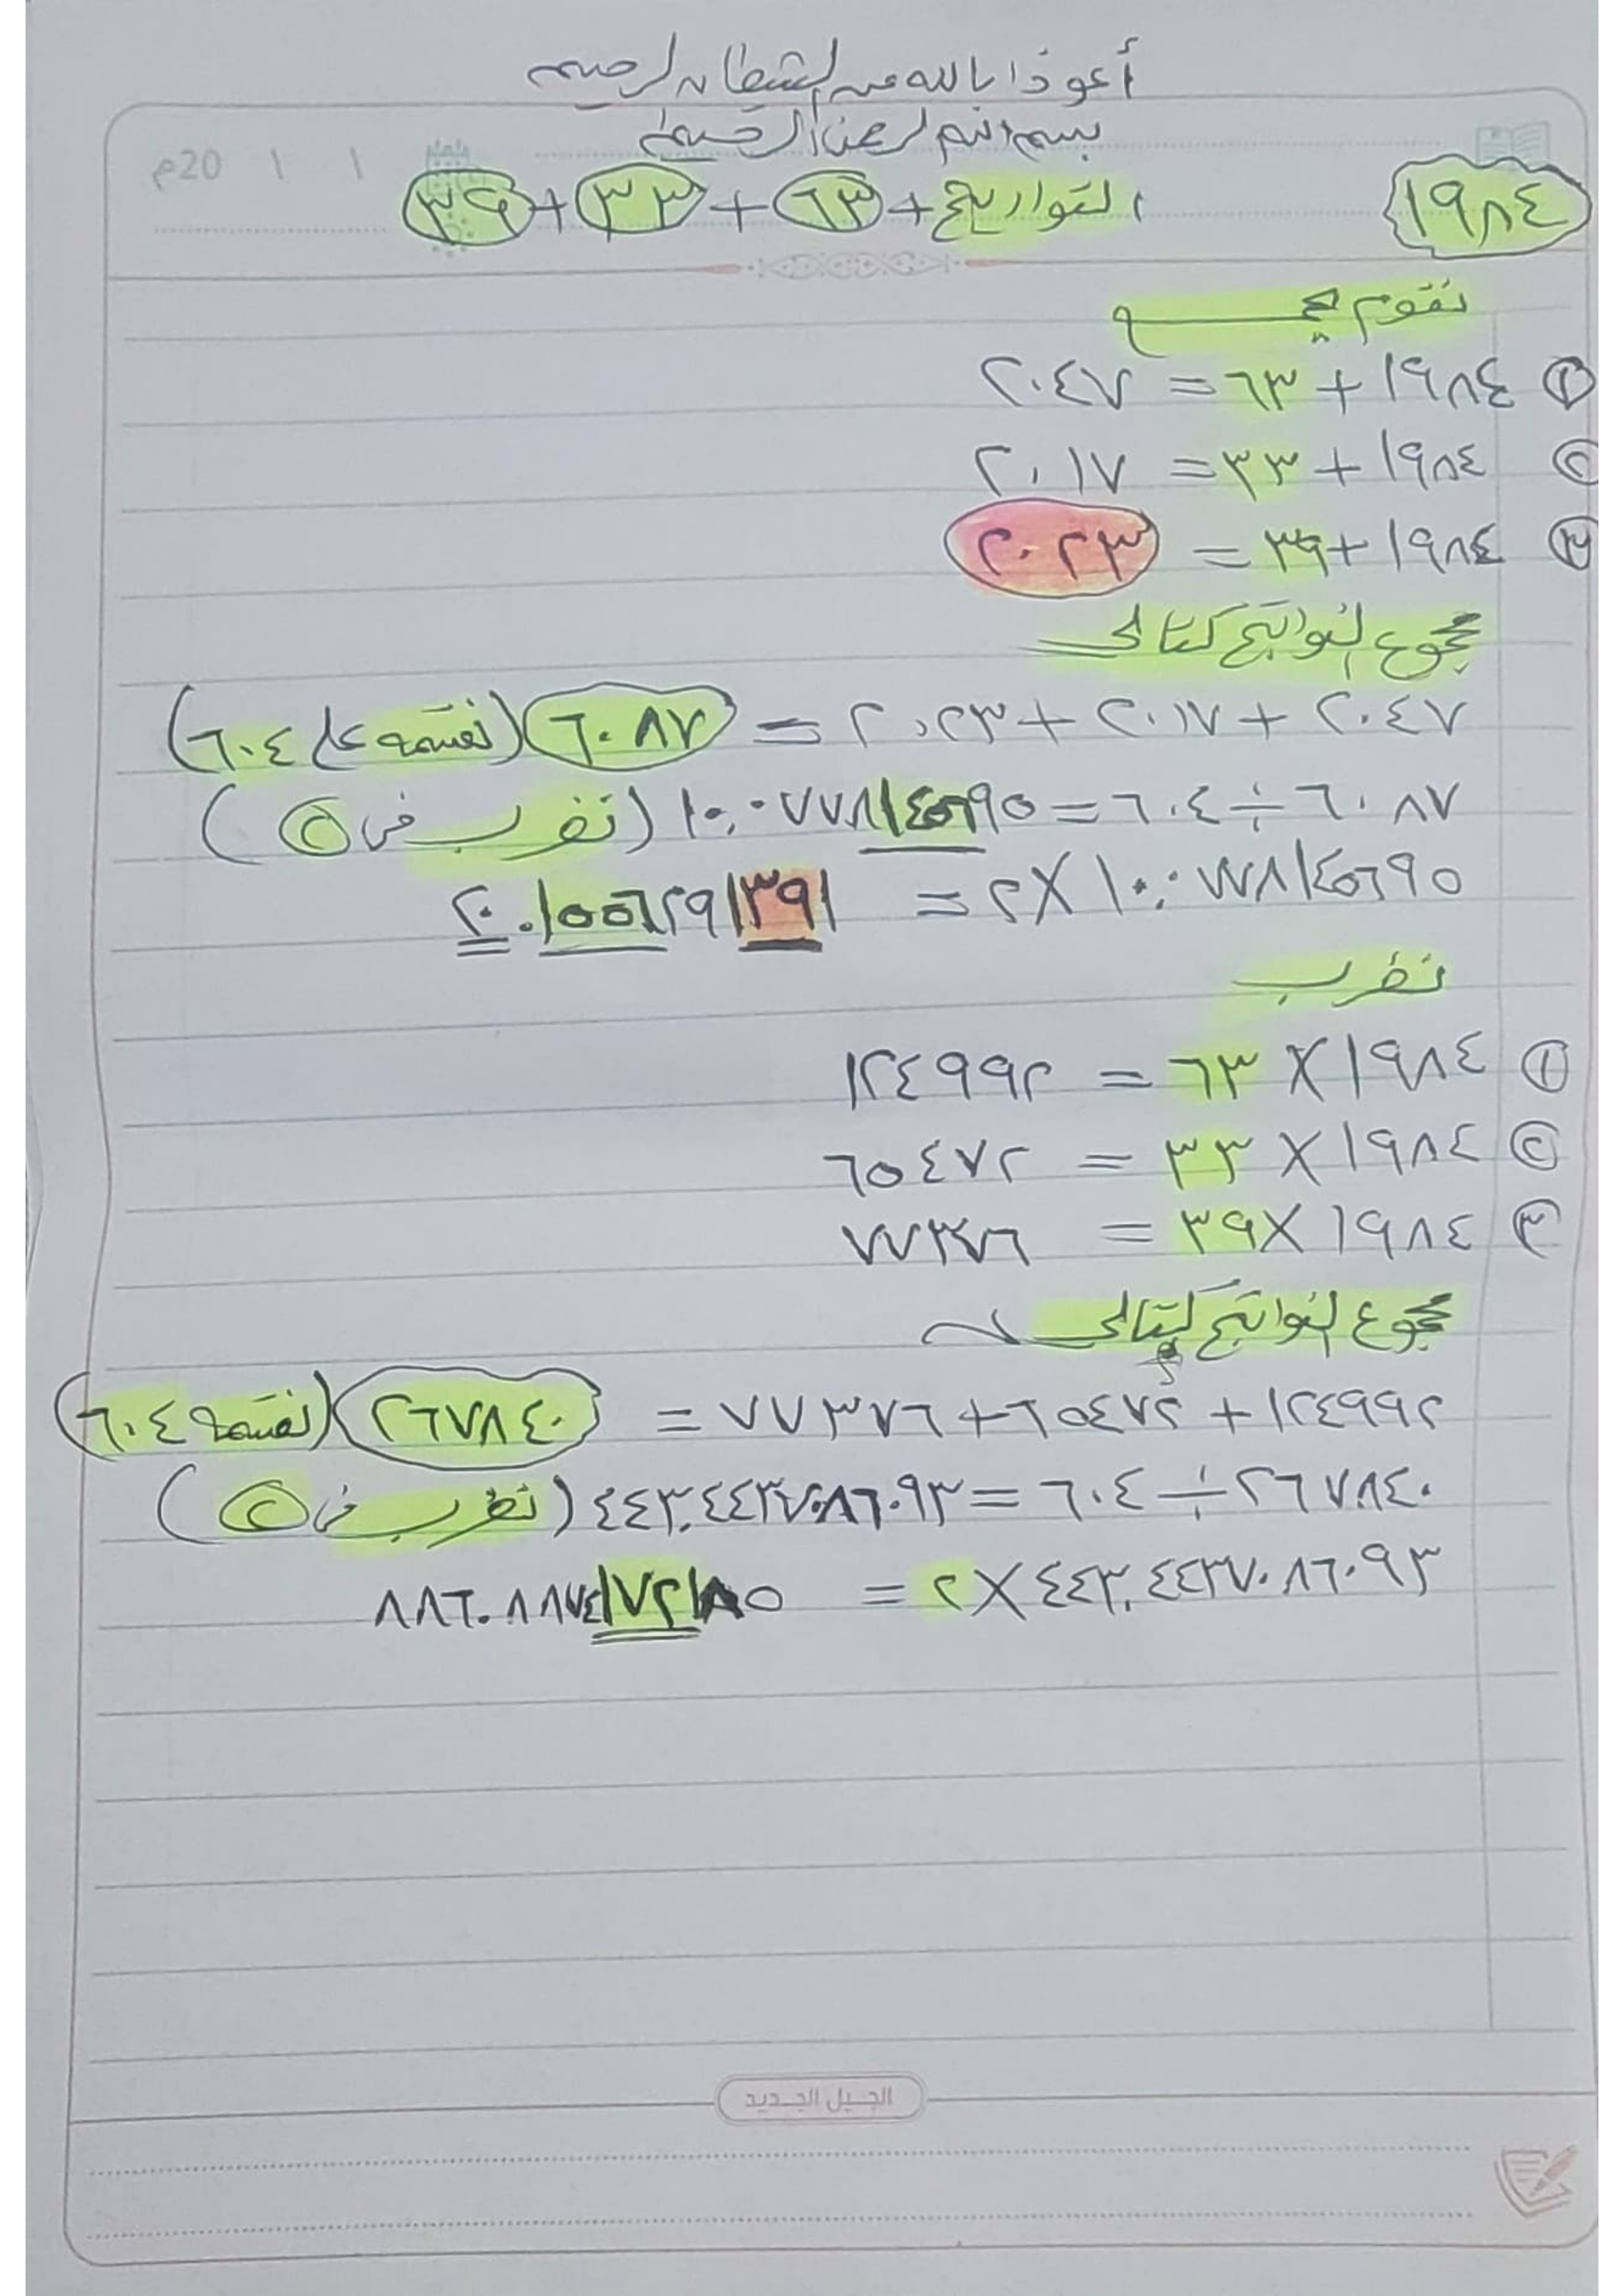 أعوذ بالله من الشيطان الرجيم
بسم الله الرحمن الرحيم
20م / /
١٩٨٤ التواريخ + ٦٣ + ٣٣ + ٣٩
نقوم بجمع
① ١٩٨٤ + ٦٣ = ٢٠٤٧
② ١٩٨٤ + ٣٣ = ٢٠١٧
③ ١٩٨٤ + ٣٩ = ٢٠٢٣
مجموع النواتج كتالى
٢٠٤٧ + ٢٠١٧ + ٢٠٢٣ = ٦٠٨٧ (نقسمه على ٦٠٤)
٦٠٨٧ ÷ ٦٠٤ = ١٠,٠٧٧٨١٤٥٦٩٥ (نضرب فى ②)
١٠,٠٧٧٨١٤٥٦٩٥ × ٢ = ٢٠.١٥٥٦٢٩١٣٩١
نضرب
① ١٩٨٤ × ٦٣ = ١٢٤٩٩٢
② ١٩٨٤ × ٣٣ = ٦٥٤٧٢
③ ١٩٨٤ × ٣٩ = ٧٧٣٧٦
مجموع النواتج كتالى
١٢٤٩٩٢ + ٦٥٤٧٢ + ٧٧٣٧٦ = ٢٦٧٨٤٠ (نقسمه ٦٠٤)
٢٦٧٨٤٠ ÷ ٦٠٤ = ٤٤٣,٤٤٣٧٠٨٦٠٩٣ (نضرب فى ②)
٤٤٣,٤٤٣٧٠٨٦٠٩٣ × ٢ =
الجيل الجديد